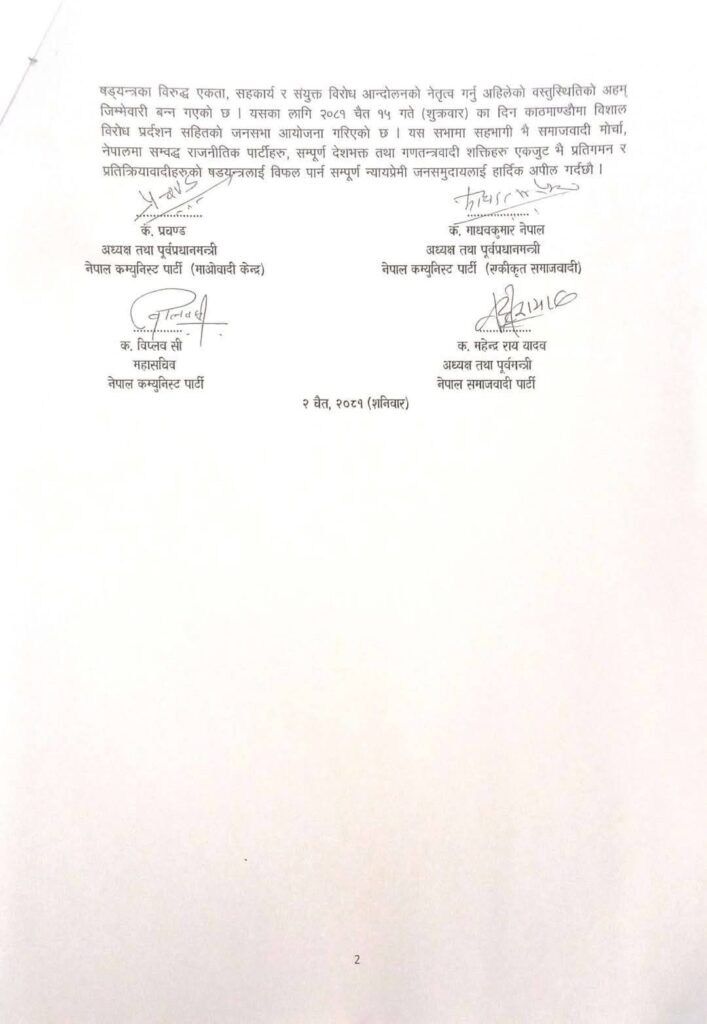 षड्यन्त्रका विरुद्ध एकता, सहकार्य र संयुक्त विरोध आन्दोलनको नेतृत्व गर्नु अहिलेको वस्तुस्थितिको अहम्
जिम्मेवारी बन्न गएको छ । यसका लागि २०८१ चैत १५ गते (शुक्रवार) का दिन काठमाण्डौमा विशाल
विरोध प्रर्दशन सहितको जनसभा आयोजना गरिएको छ । यस सभामा सहभागी भै समाजवादी मोर्चा,
नेपालमा सम्वद्ध राजनीतिक पार्टीहरु, सम्पूर्ण देशभक्त तथा गणतन्त्रवादी शक्तिहरु एकजुट भै प्रतिगमन र
प्रतिक्रियावादीहरुको षडयन्त्रलाई विफल पार्न सम्पूर्ण न्यायप्रेमी जनसमुदायलाई हार्दिक अपील गर्दछौ ।
क. प्रचण्ड
अध्यक्ष तथा पूर्वप्रधानमन्त्री
नेपाल कम्युनिस्ट पार्टी (माओवादी केन्द्र)
क. माधवकुमार नेपाल
अध्यक्ष तथा पूर्वप्रधानमन्त्री
नेपाल कम्युनिस्ट पार्टी (एकीकृत समाजवादी)
क. विप्लव सी
महासचिव
नेपाल कम्युनिस्ट पार्टी
क. महेन्द्र राय यादव
अध्यक्ष तथा पूर्वमन्त्री
नेपाल समाजवादी पार्टी
२ चैत, २०८१ (शनिवार)
2